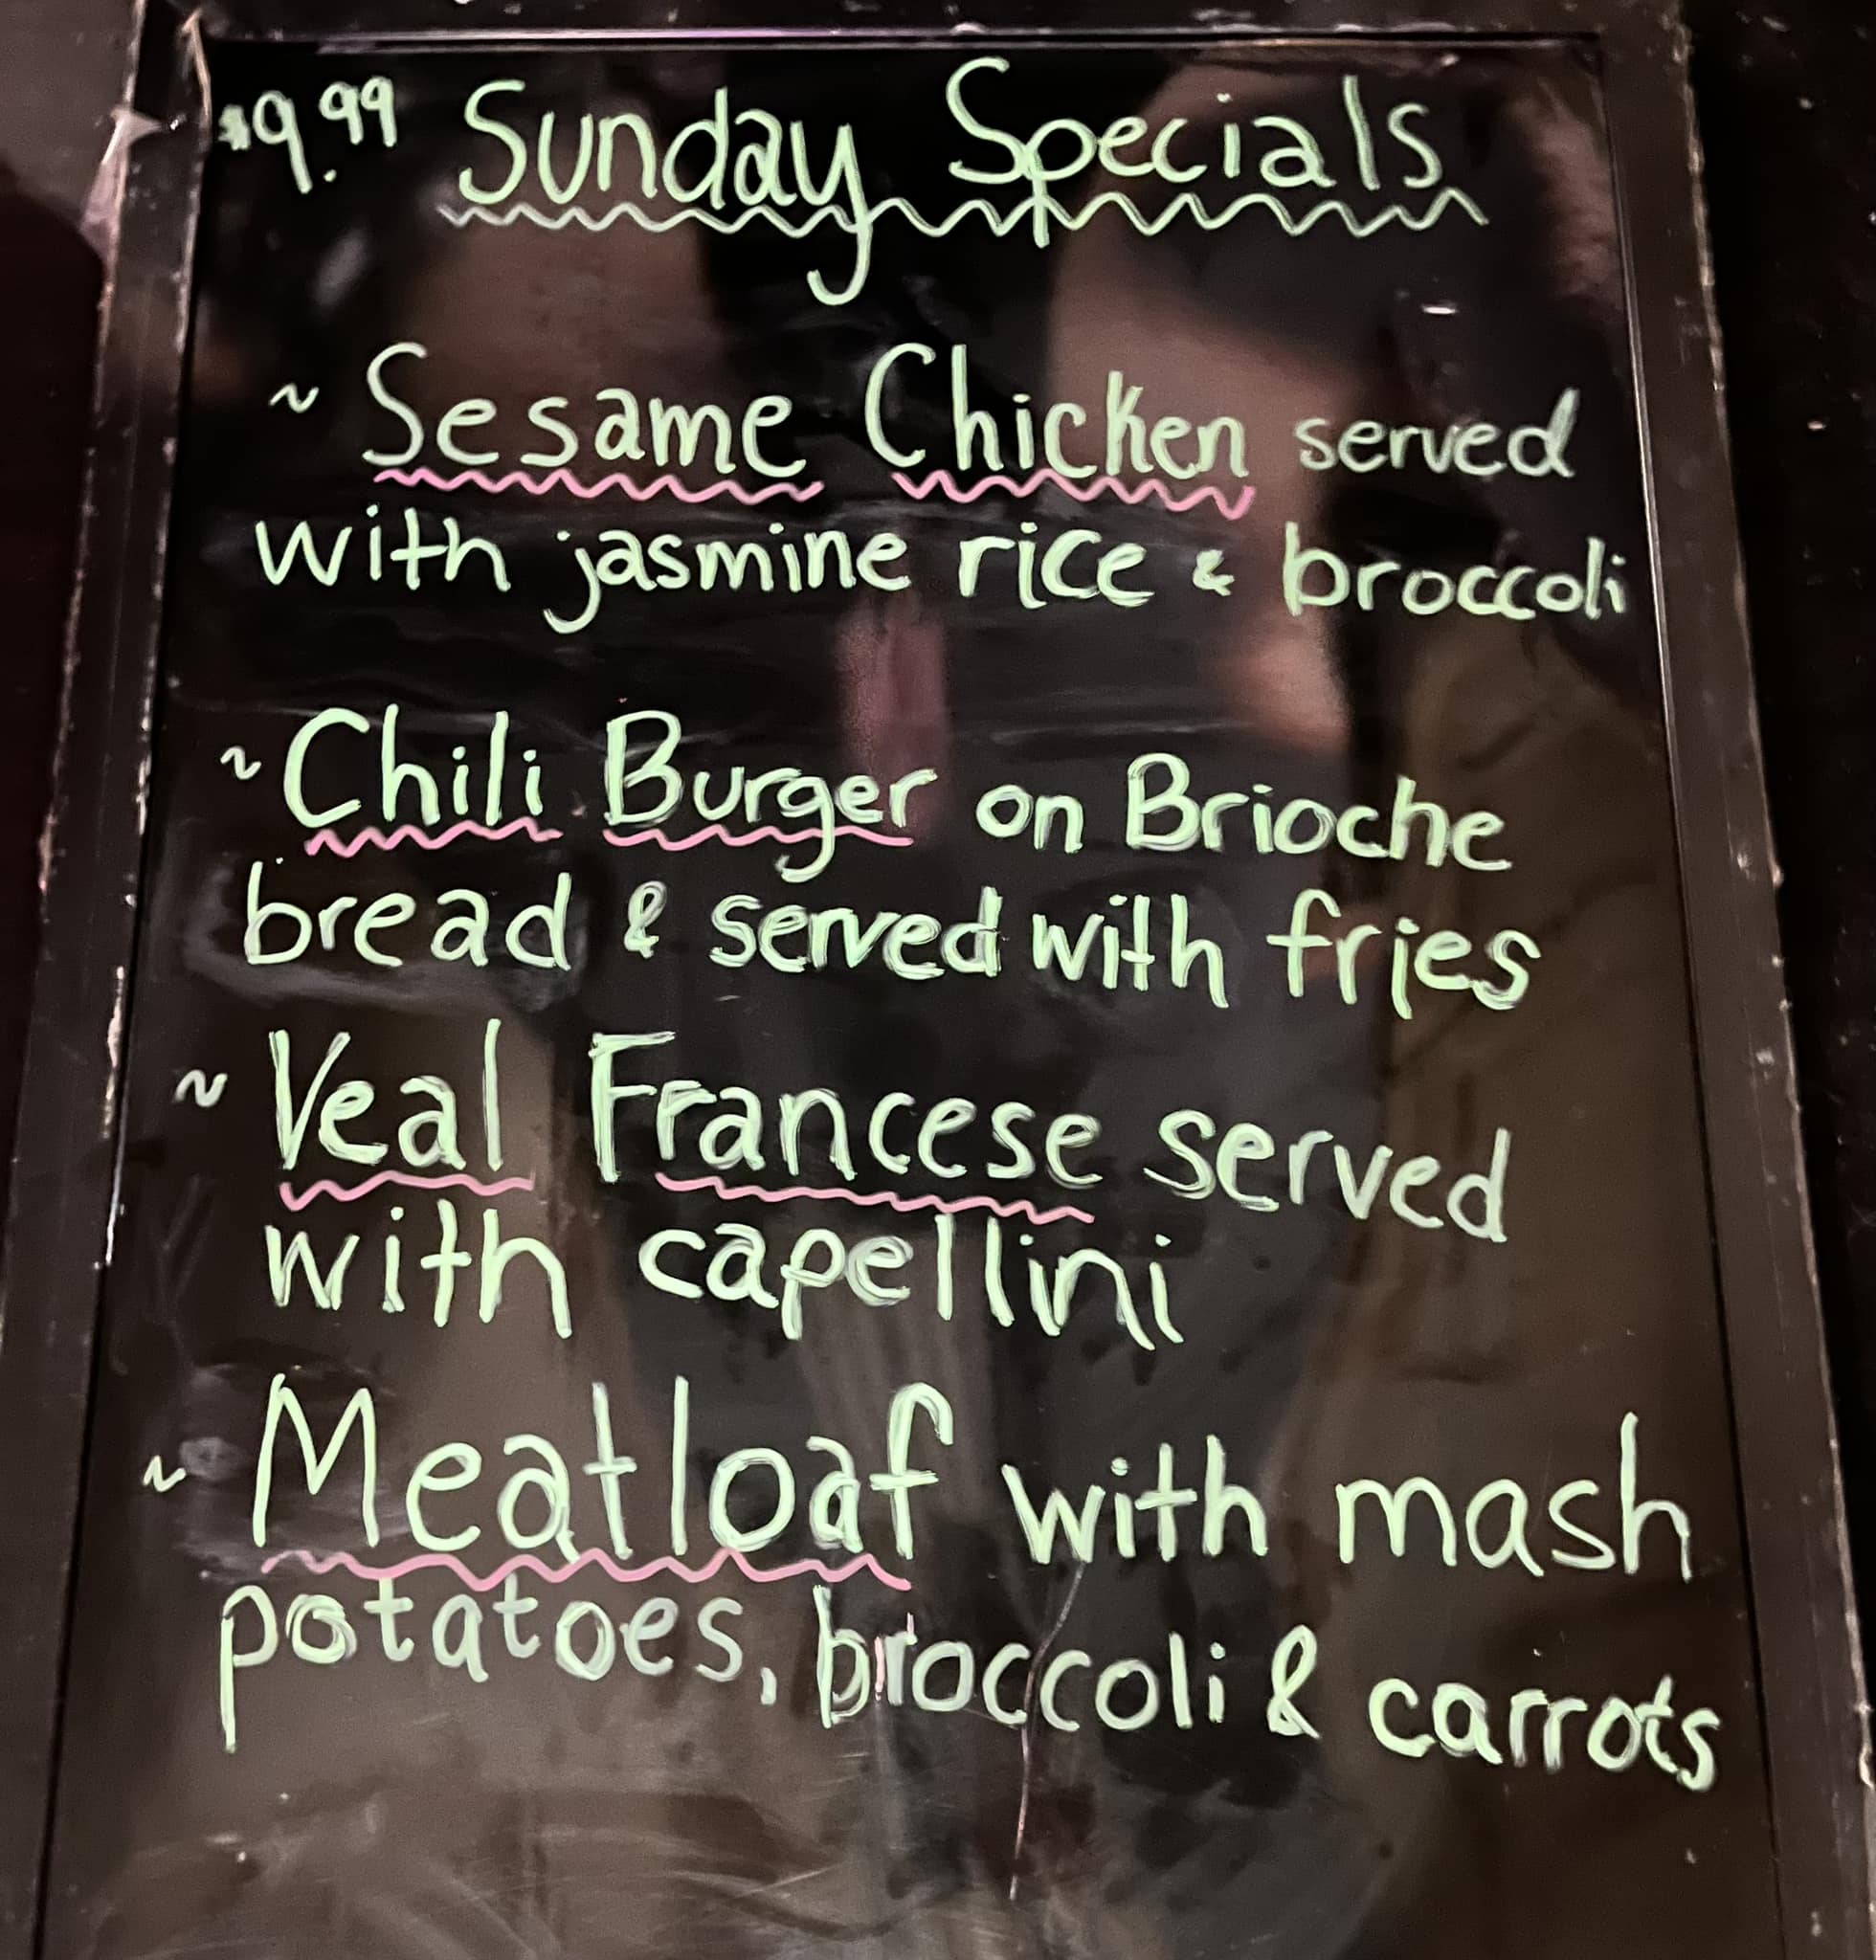 $9.99 Sunday Specials
~ Sesame Chicken served
with jasmine rice & broccoli
~ Chili Burger on Brioche
bread & served with fries
~ Veal Francese served
with capellini
~ Meatloaf with mash
potatoes, broccoli & carrots